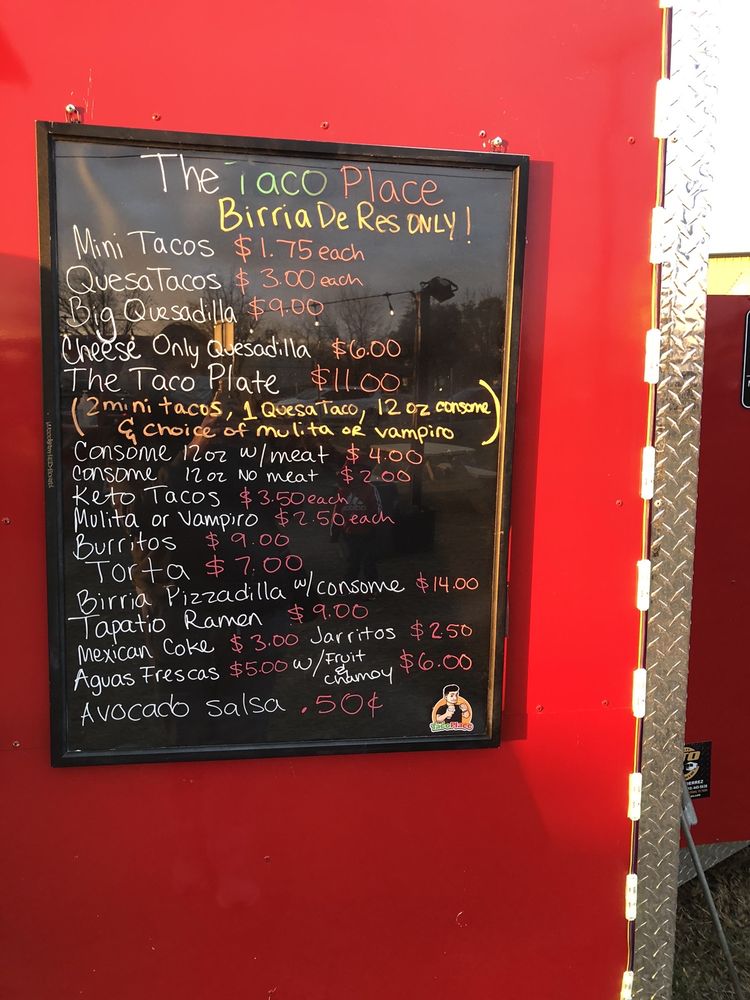 The Taco Place
Birria De Res ONLY!
Mini Tacos $1.75 each
QuesaTacos $3.00 each
Big Quesadilla $9.00
Cheese Only Quesadilla $6.00
The Taco Plate $11.00
(2 mini tacos, 1 QuesaTaco, 12 oz consome
& choice of mulita or vampiro)
Consome 12 oz w/meat $4.00
Consome 12 oz No meat $2.00
Keto Tacos $3.50 each
Mulita or Vampiro $2.50 each
Burritos $9.00
Torta $7.00
Birria Pizzadilla w/consome $14.00
Tapatio Ramen $9.00
Mexican Coke $3.00 Jarritos $2.50
Aguas Frescas $5.00 w/Fruit & chamoy $6.00
Avocado salsa .50¢
Taco Place